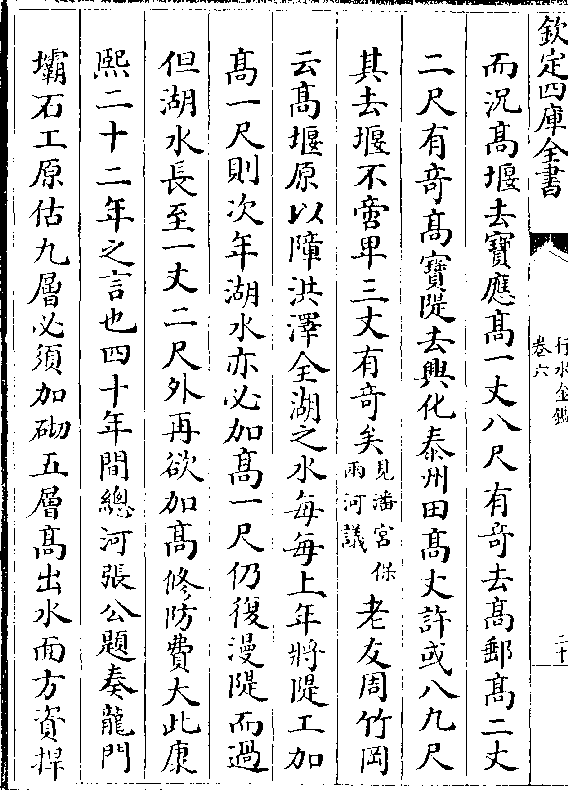 欽定四庫全書
行水金鑑
卷六
二十
而況髙堰去寳應髙一丈八尺有竒去髙郵髙二丈
二尺有竒髙寳隄去興化泰州田髙丈許或八九尺
其去堰不啻卑三丈有竒矣見潘宫保兩河議老友周竹岡
云髙堰原以障洪澤全湖之水每每上年將隄工加
髙一尺則次年湖水亦必加髙一尺仍復漫隄而過
但湖水長至一丈二尺外再欲加髙修防費大此康
熙二十二年之言也四十年間總河張公題奏龍門
壩石工原估九層必須加砌五層髙出水面方資捍